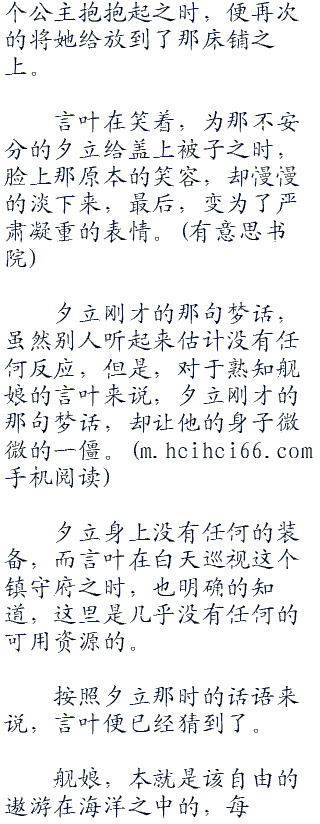 个公主抱抱起之时，便再次
的将她给放到了那床铺之
上。
言叶在笑着，为那不安
分的夕立给盖上被子之时，
脸上那原本的笑容，却慢慢
的淡下来，最后，变为了严
肃凝重的表情。(有意思书
院)
夕立刚才的那句梦话，
虽然别人听起来估计没有任
何反应，但是，对于熟知舰
娘的言叶来说，夕立刚才的
那句梦话，却让他的身子微
微的一僵。(m.hcihci66.com
手机阅读)
夕立身上没有任何的装
备，而言叶在白天巡视这个
镇守府之时，也明确的知
道，这里是几乎没有任何的
可用资源的。
按照夕立那时的话语来
说，言叶便已经猜到了。
舰娘，本就是该自由的
遨游在海洋之中的，每